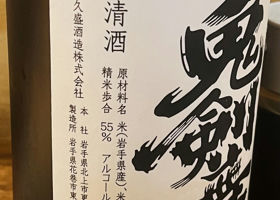 鬼剣舞
清酒
原材料名 米(岩手県産)、米
精米歩合 55% アルコール
久盛酒造株式会社
本社 岩手県北上市東
製造所 岩手県花巻市東